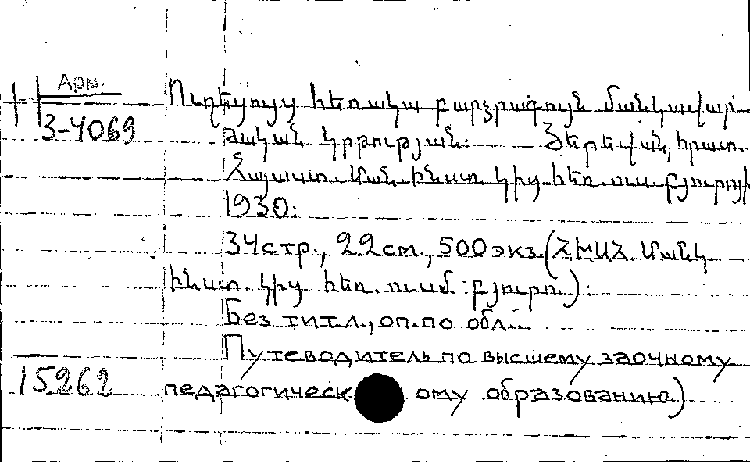 Арм.
3-4069
Ուղեցույց հեռակա բարձրագույն մանկավար-
ժական կրթության: Յերեվան, հրատ.
Հայաստ. Ման. ինստ. կից հեռ. ուս. բյուրոյի
1930:
34стр., 22см., 500экз. (ՀԽՍՀ. Մանկ
ինստ. կից հեռ. ուսմ. բյուրո):
Без титл., оп. по обл.
Путеводитель по высшему заочному
педагогическ ому образованию)
15262